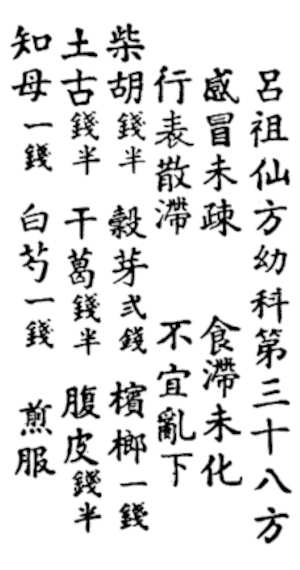 呂祖仙方幼科第三十八方
感冒未疎 食滯未化
行表散滯 不宜亂下
柴胡錢半 穀芽弍錢 檳榔一錢
土古錢半 干葛錢半 腹皮錢半
知母一錢 白芍一錢 煎服